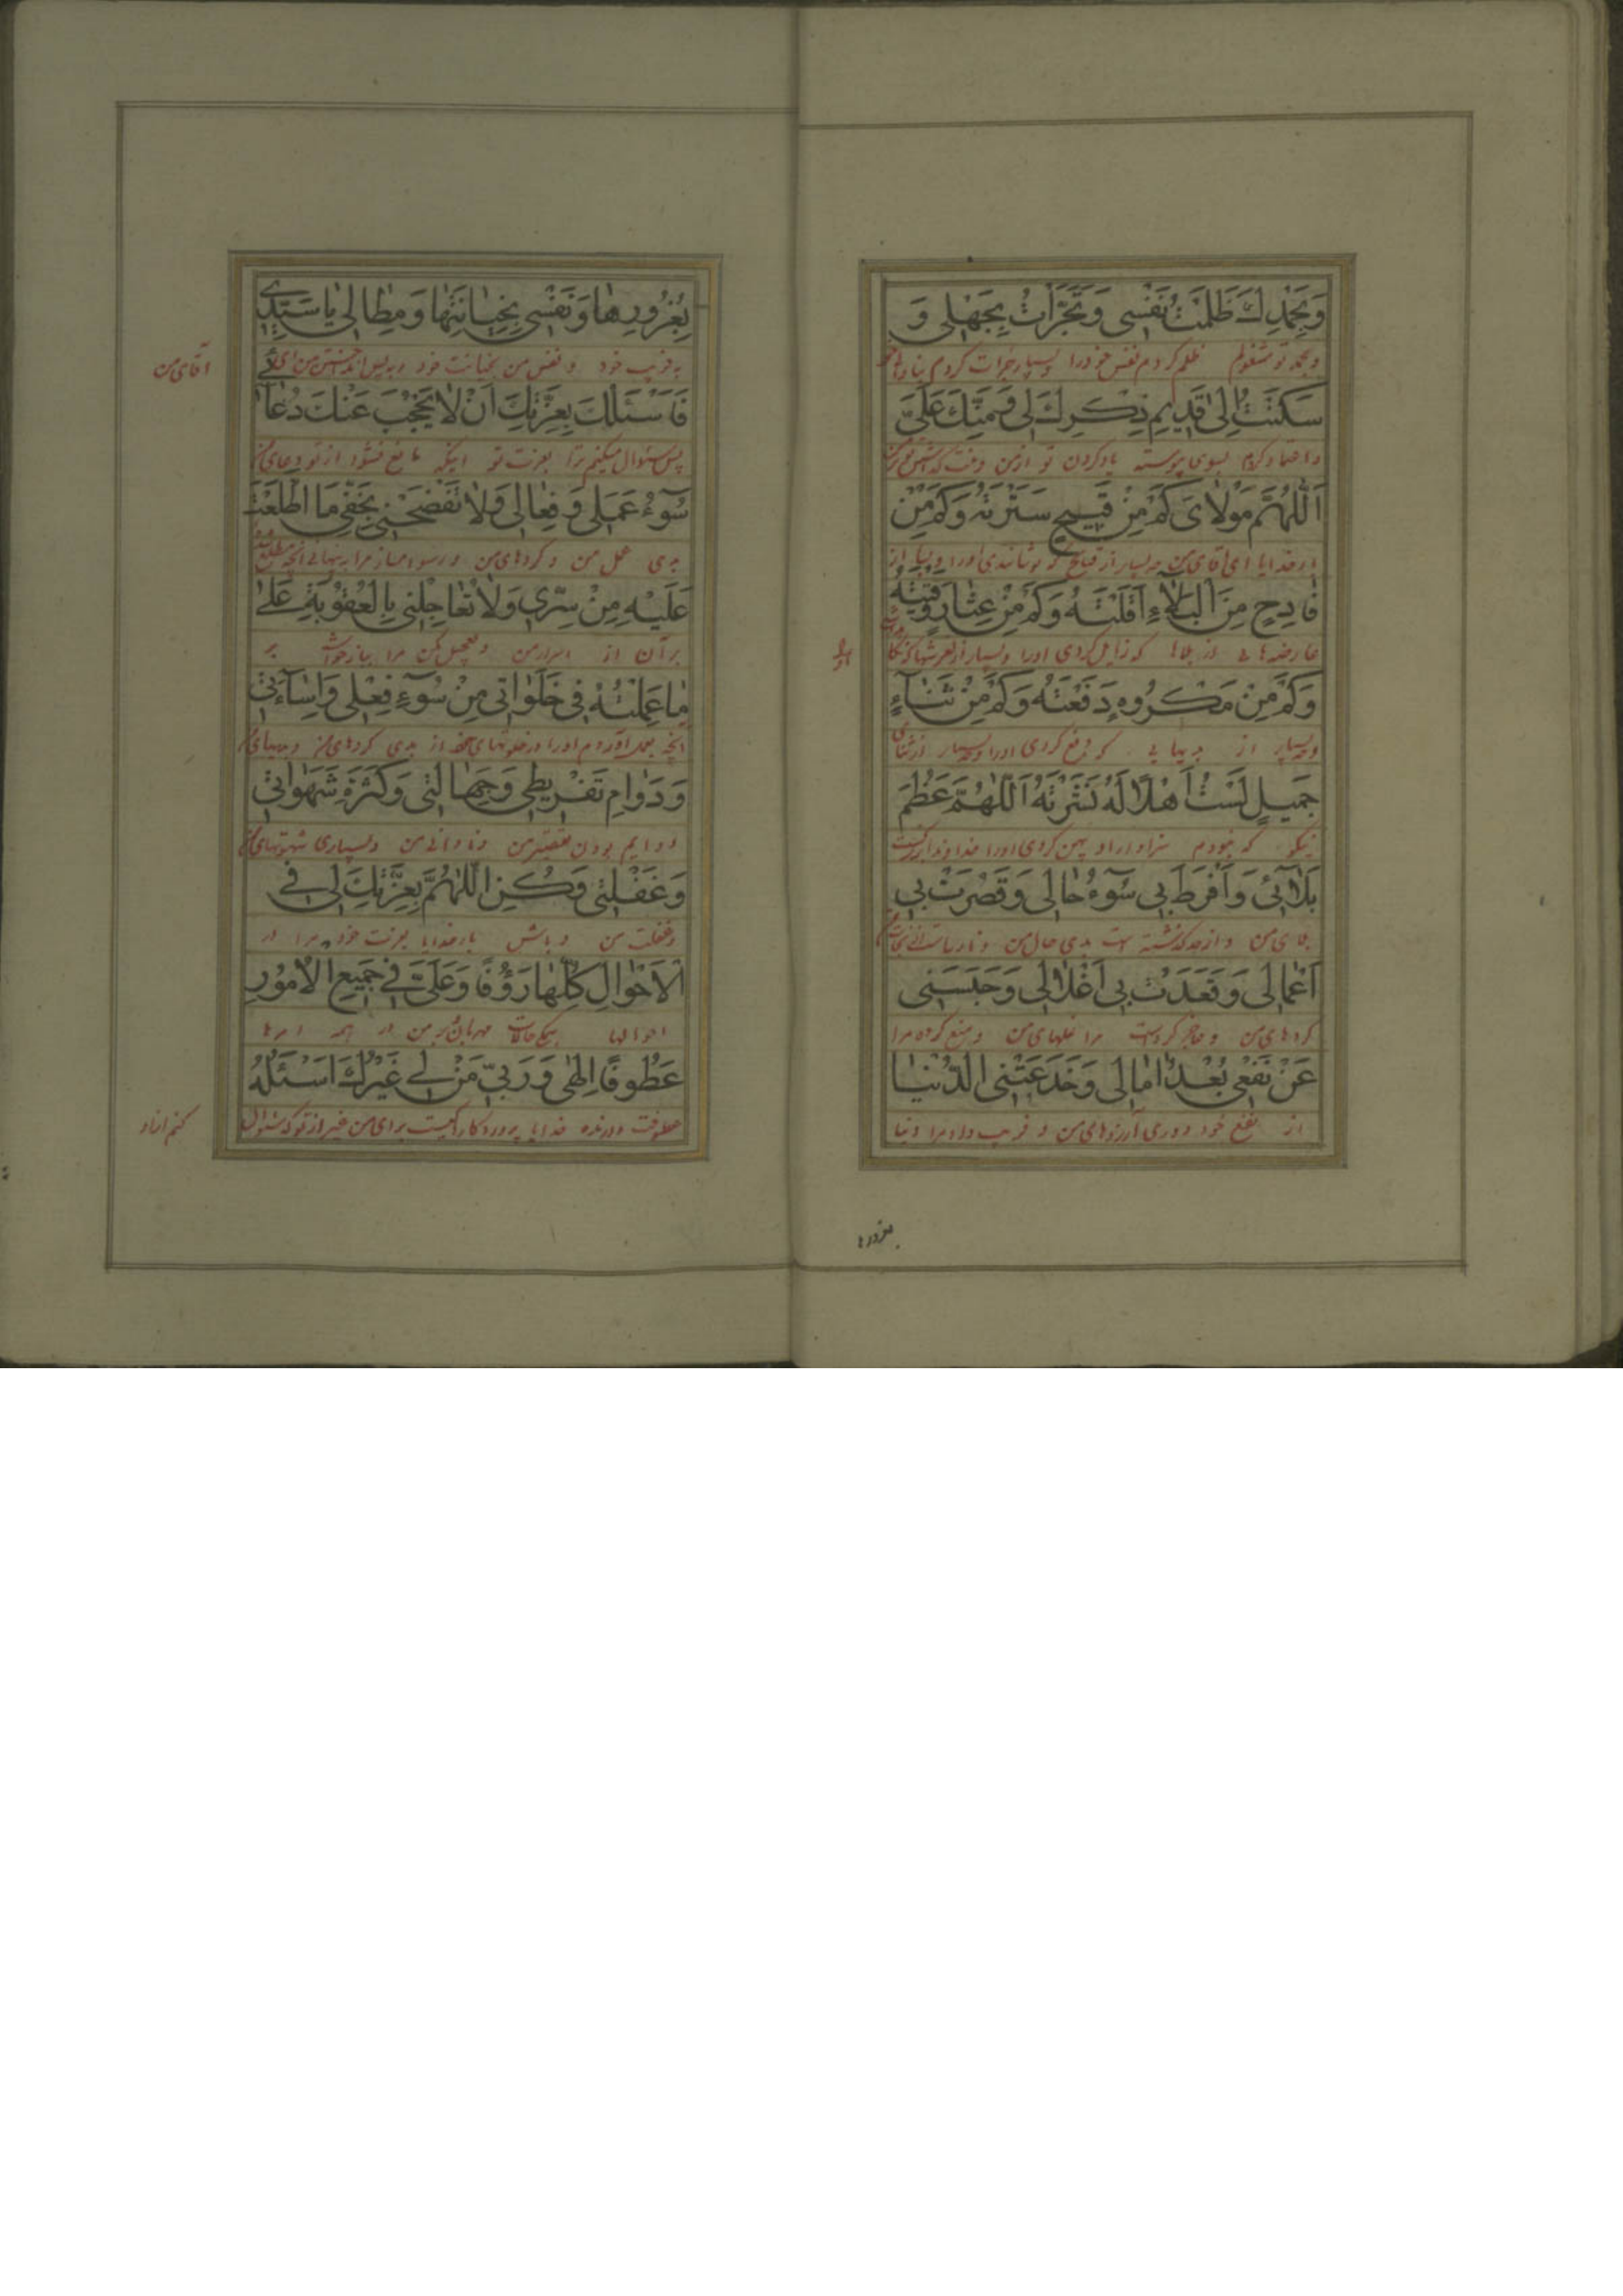 وَبِحَمْدِكَ ظَلَمْتُ نَفْسِی وَتَجَرَّأْتُ بِجَهْلِی وَ
و بحمد تو مشغولم ظلم کردم نفس خود را و بسیار جرات کردم بنادانی
سَكَنْتُ اِلىٰ قَدِیمِ ذِكْرِكَ لِی وَمَنِّكَ عَلَیَّ
و اعتماد کردم بسوی پیوسته یاد کردن تو از من و منت گذاشتن تو بر من
اَللّٰهُمَّ مَوْلاٰیَ كَمْ مِنْ قَبِیحٍ سَتَرْتَهُ وَكَمْ مِنْ
بار خدایا ای آقای من چه بسیار از قبایح که پوشانیدی او را و بسیار از
فٰادِحٍ مِنَ الْبَلاٰءِ اَقَلْتَهُ وَكَمْ مِنْ عِثٰارٍ وَقَیْتَهُ
عارضه‌هائی از بلاها که زایل کردی او را و بسیار از لغزشها که نگاه
وَكَمْ مِنْ مَكْرُوهٍ دَفَعْتَهُ وَكَمْ مِنْ ثَنٰاءٍ
و چه بسیار از بدیهائی که دفع کردی او را و چه بسیار از ثنای
جَمِیلٍ لَسْتُ اَهْلاً لَهُ نَشَرْتَهُ اَللّٰهُمَّ عَظُمَ
نیکو که نبودم سزاوار او پهن کردی او را خداوندا بزرگست
بَلاٰئِی وَاَفْرَطَ بِی سُوٓءُ حٰالِی وَقَصُرَتْ بِی
بلای من و از حد گذشته است بدی حال من و نارساست
اَعْمٰالِی وَقَعَدَتْ بِی اَغْلاٰلِی وَحَبَسَنِی
کردهای من و عاجز کرده است مرا غلهای من و منع کرده مرا
عَنْ نَفْعِی بُعْدُ اٰمٰالِی وَخَدَعَتْنِی الدُّنْیٰا
از نفع خود دوری آرزوهای من و فریب داده مرا دنیا
بغرورها
بِغُرُورِهٰا وَنَفْسِی بِخِیٰانَتِهٰا وَمِطٰالِی یٰاسَیِّدِی
به فریب خود و نفس من بخیانت خود و به پس انداختن من ای
آقای من
فَاَسْئَلُكَ بِعِزَّتِكَ اَنْ لاٰ یَحْجُبَ عَنْكَ دُعٰائِی
پس سئوال میکنم ترا بعزت تو اینکه مانع نشود از تو دعای من
سُوٓءُ عَمَلِی وَفِعٰالِی وَلاٰ تَفْضَحْنِی بِخَفِیِّ مَا اطَّلَعْتَ
بدی عمل من و کردهای من و رسوا مساز مرا به پنهانی آنچه مطلع شدی
عَلَیْهِ مِنْ سِرِّی وَلاٰ تُعٰاجِلْنِی بِالْعُقُوبَةِ عَلىٰ
بر آن از اسرار من و تعجیل مکن مرا ببازخواست بر
مٰا عَمِلْتُهُ فِی خَلَوٰاتِی مِنْ سُوٓءِ فِعْلِی وَاِسٰآءَتِی
آنچه بعمل آوردم او را در خلوتهای خود از بدی کردهای من و بدیهای من
وَدَوٰامِ تَفْرِیطِی وَجَهٰالَتِی وَكَثْرَةِ شَهَوٰاتِی
و دایم بودن تقصیر من و نادانی من و بسیاری شهوتهای من
وَغَفْلَتِی وَكُنِ اللّٰهُمَّ بِعِزَّتِكَ لِی فِی
و غفلت من و باش بار خدایا بعزت خود مرا در
الْاَحْوٰالِ كُلِّهٰا رَؤُفًا وَعَلَیَّ فِی جَمِیعِ الْاُمُورِ
احوالها مهربان و بر من در همه امرها
عَطُوفًا اِلٰهِی وَرَبِّی مَنْ لِی غَیْرُكَ اَسْئَلُهُ
عطوفت ورزنده خدایا پروردگارا کیست برای من غیر از تو که سئوال
کنم از او